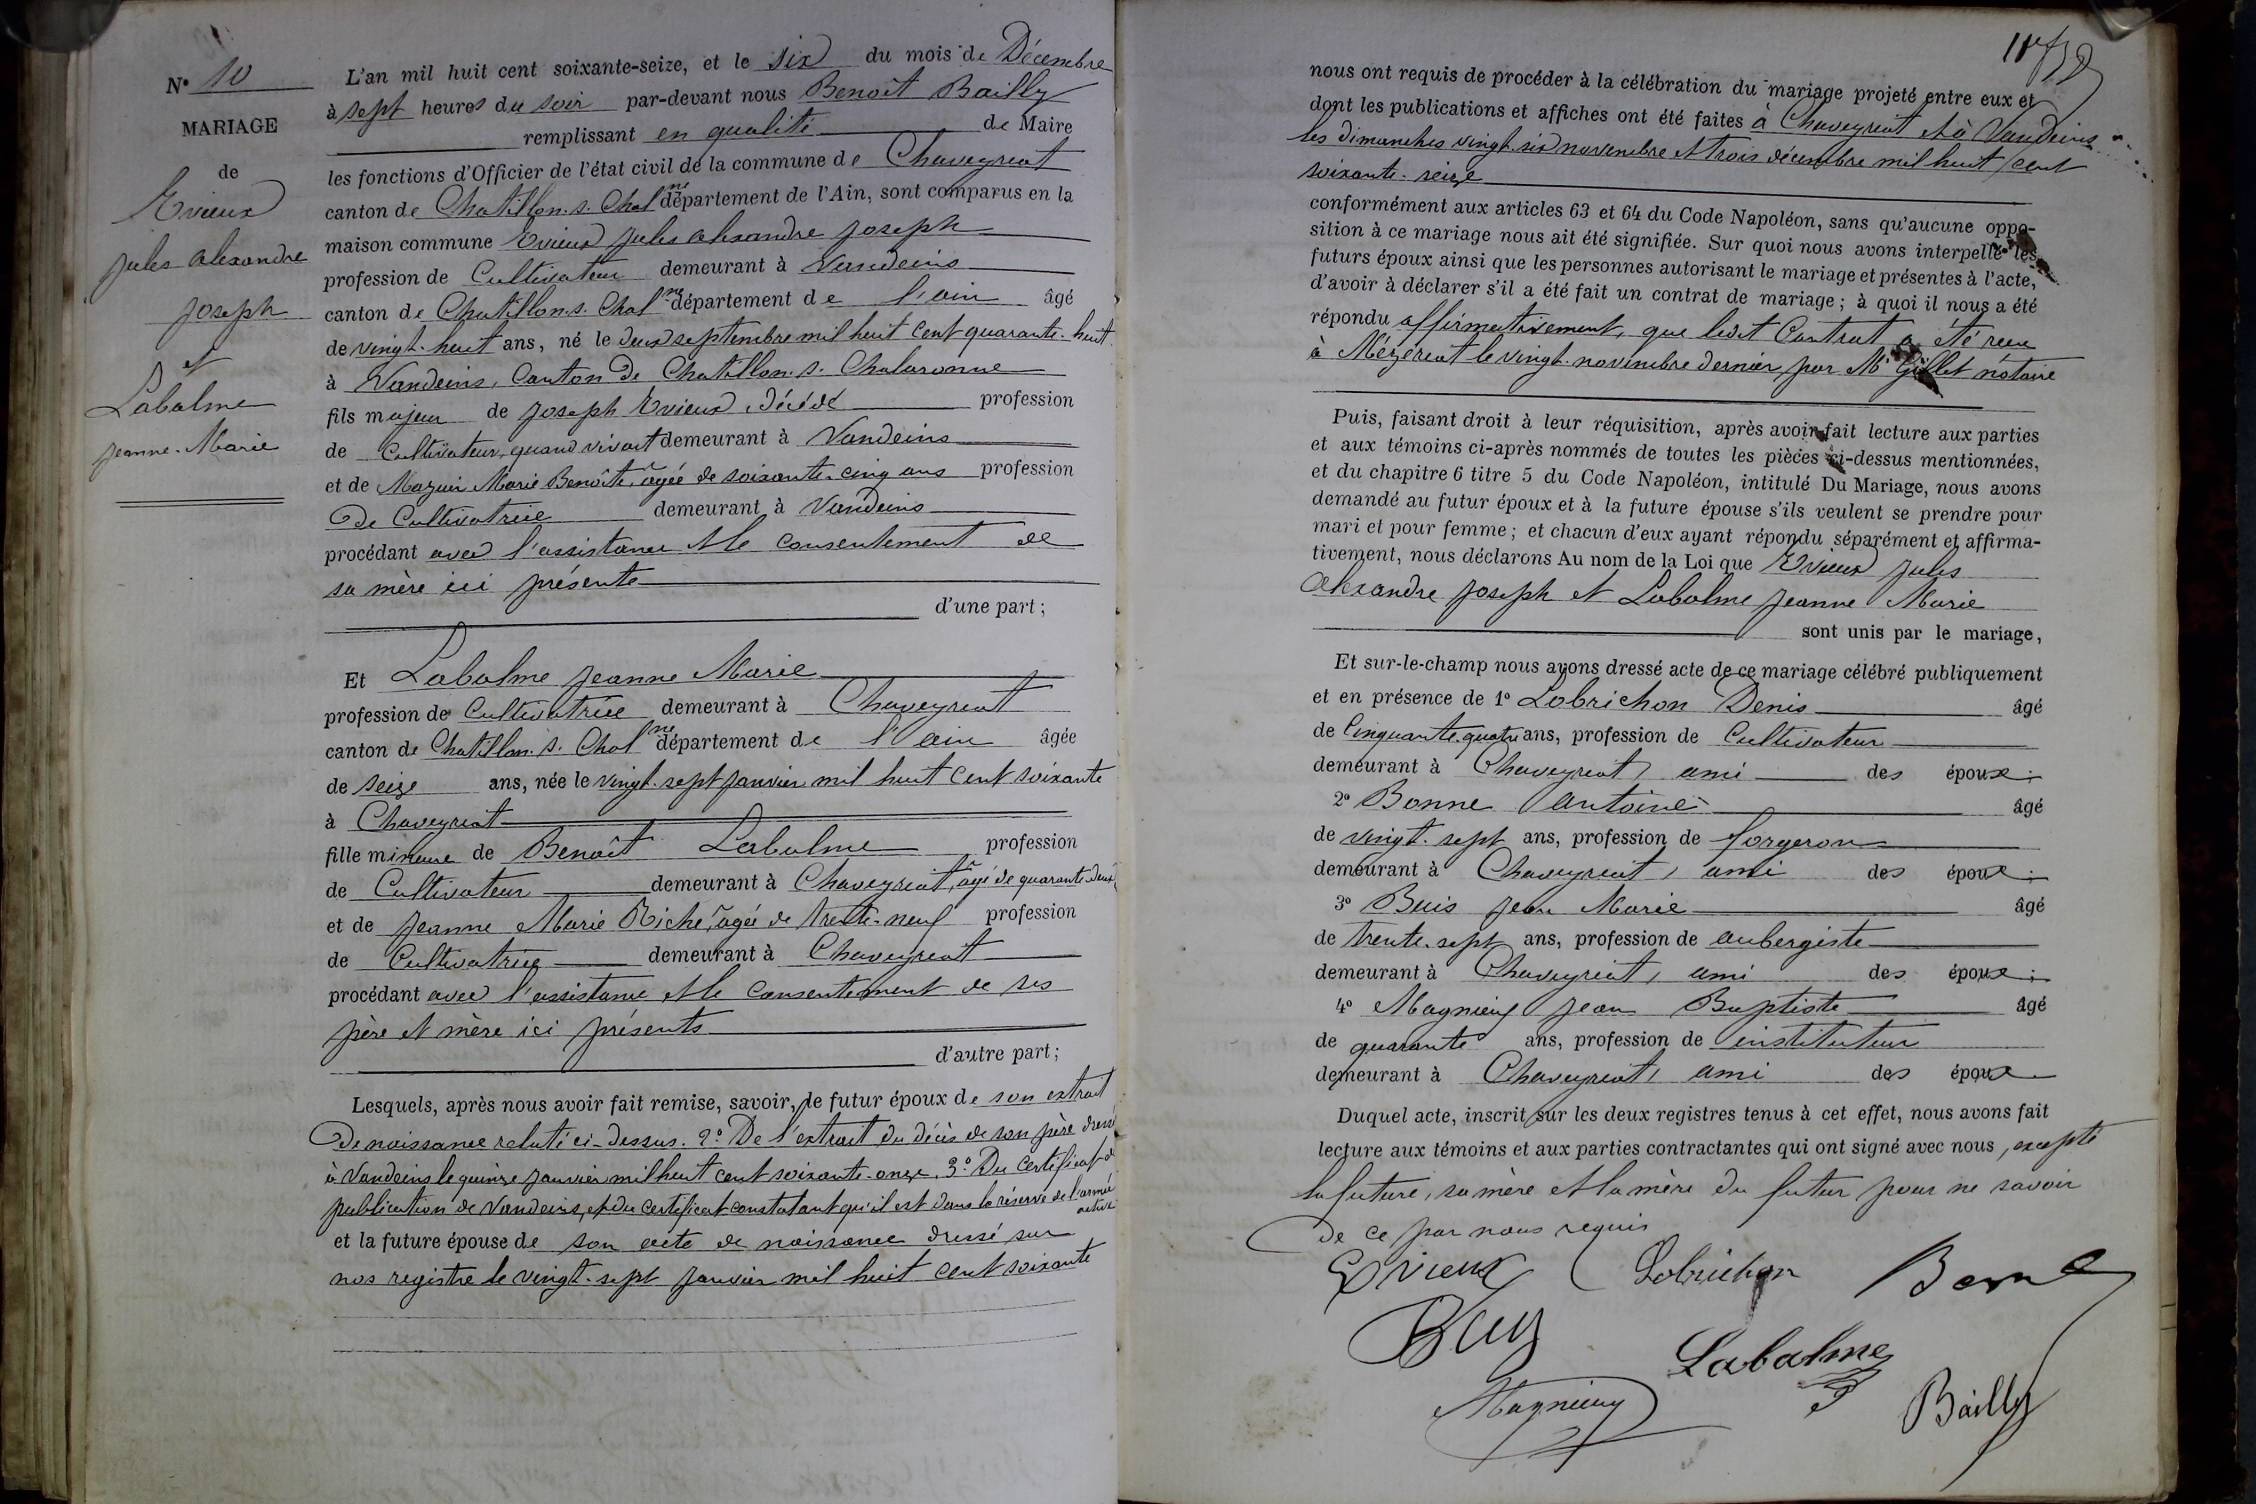 N° 10
MARIAGE
de
Evieux
Jules Alexandre
Joseph
et
Labalme
Jeanne-Marie
L'an mil huit cent soixante-seize, et le six du mois de Décembre
à sept heures du soir par-devant nous Benoît Bailly
remplissant en qualité de Maire
les fonctions d'Officier de l'état civil de la commune de Chaveyriat
canton de Chatillon-s-Chalne département de l'Ain, sont comparus en la
maison commune Evieux Jules Alexandre Joseph
profession de Cultivateur demeurant à Vandeins
canton de Chatillon-s-Chalne département de l'ain âgé
de vingt-huit ans, né le deux septembre mil huit cent quarante-huit
à Vandeins, Canton de Chatillon-s-Chalaronne
fils majeur de Joseph Evieux, décédé profession
de Cultivateur, quand vivait demeurant à Vandeins
et de Mazuir Marie Benoîte, âgée de soixante-cinq ans profession
de Cultivatrice demeurant à Vandeins
procédant avec l'assistance et le consentement de
sa mère ici présente
d'une part;
Et Labalme Jeanne Marie
profession de Cultivatrice demeurant à Chaveyriat
canton de Chatillon-s-Chalne département de l'ain âgée
de seize ans, née le vingt-sept janvier mil huit cent soixante
à Chaveyriat
fille mineure de Benoît Labalme profession
de Cultivateur demeurant à Chaveyriat, âgé de quarante-deux
et de Jeanne Marie Riche, âgée de trente-neuf profession
de Cultivatrice demeurant à Chaveyriat
procédant avec l'assistance et le consentement de ses
père et mère ici présents
d'autre part;
Lesquels, après nous avoir fait remise, savoir, le futur époux de son extrait
de naissance relaté ci-dessus. 2° De l'extrait du décès de son père dressé
à Vandeins le quinze janvier mil huit cent soixante-onze. 3° Du certificat de
publication de Vandeins, et du certificat constatant qu'il est dans la réserve de l'armée
active
et la future épouse de son acte de naissance dressé sur
nos registre le vingt-sept janvier mil huit cent soixante
nous ont requis de procéder à la célébration du mariage projeté entre eux et
dont les publications et affiches ont été faites à Chaveyriat et à Vandeins
les dimanches vingt-six novembre et trois décembre mil huit cent
soixante-seize
conformément aux articles 63 et 64 du Code Napoléon, sans qu'aucune oppo-
sition à ce mariage nous ait été signifiée. Sur quoi nous avons interpellé les
futurs époux ainsi que les personnes autorisant le mariage et présentes à l'acte,
d'avoir à déclarer s'il a été fait un contrat de mariage; à quoi il nous a été
répondu affirmativement, que ledit Contrat a été reçu
à Mézériat le vingt novembre dernier, par Me Gillet notaire
Puis, faisant droit à leur réquisition, après avoir fait lecture aux parties
et aux témoins ci-après nommés de toutes les pièces ci-dessus mentionnées,
et du chapitre 6 titre 5 du Code Napoléon, intitulé Du Mariage, nous avons
demandé au futur époux et à la future épouse s'ils veulent se prendre pour
mari et pour femme; et chacun d'eux ayant répondu séparément et affirma-
tivement, nous déclarons Au nom de la Loi que Evieux Jules
Alexandre Joseph et Labalme Jeanne Marie
sont unis par le mariage,
Et sur-le-champ nous avons dressé acte de ce mariage célébré publiquement
et en présence de 1° Lobrichon Denis âgé
de Cinquante-quatre ans, profession de Cultivateur
demeurant à Chaveyriat, ami des époux;
2° Bonne Antoine âgé
de vingt-sept ans, profession de forgeron
demeurant à Chaveyriat, ami des époux;
3° Buis Jean Marie âgé
de trente-sept ans, profession de aubergiste
demeurant à Chaveyriat, ami des époux;
4° Magnieny Jean Baptiste âgé
de quarante ans, profession de instituteur
demeurant à Chaveyriat, ami des époux
Duquel acte, inscrit sur les deux registres tenus à cet effet, nous avons fait
lecture aux témoins et aux parties contractantes qui ont signé avec nous, excepté
la future, sa mère et la mère du futur pour ne savoir
de ce par nous requis
Evieux Lobrichon Bonne
Buis
Labalme
Magnieny
Bailly